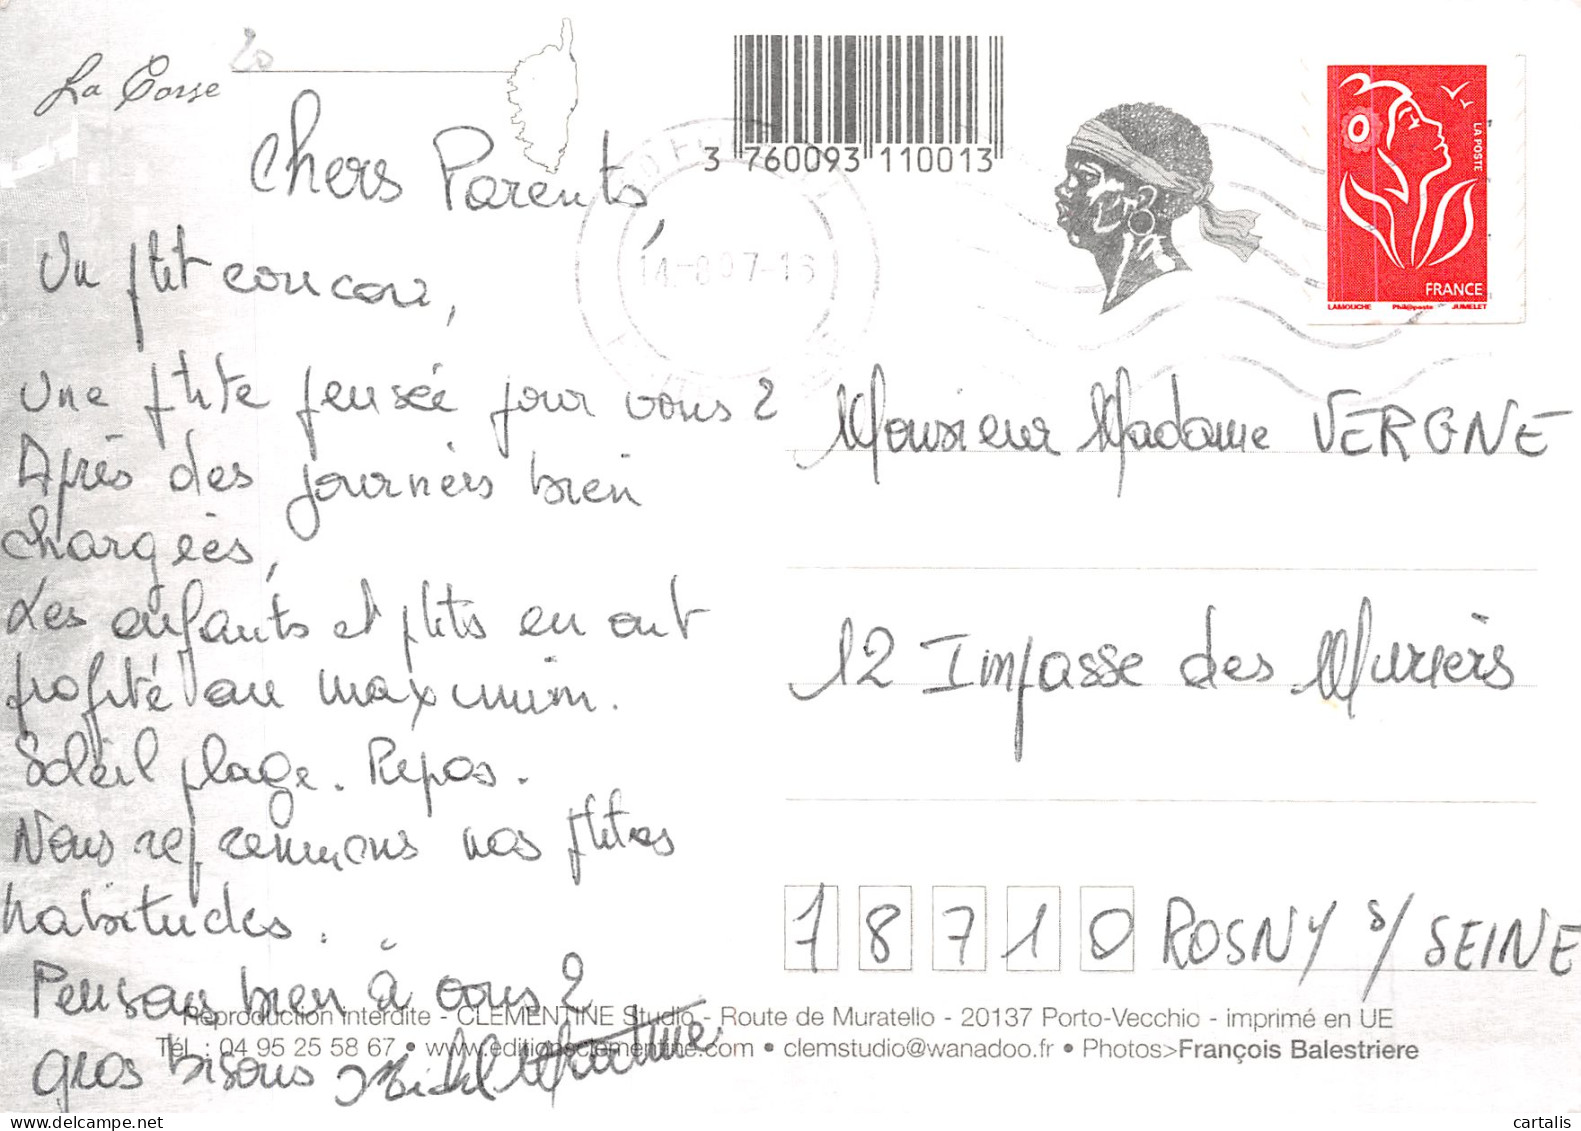 La Corse
20
3 760093 110013
14-8 07-16
LA POSTE
FRANCE
LAMOUCHE Phil@poste JUMELET
Chers Parents,
Un ptit coucou,
Une ptite pensée pour vous 2
Après des journéés bien
chargéés,
Les enfants et ptits en ont
profité au maximum.
Soleil plage. Repos.
Nous reprennons nos ptites
habitudes.
Pensons bien à vous 2
gros bisous Michel Martine
Monsieur Madame VERGNE
12 Impasse des Muriérs
78710 ROSNY s/ SEINE
Reproduction interdite - CLEMENTINE Studio - Route de Muratello - 20137 Porto-Vecchio - imprimé en UE
Tél. : 04 95 25 58 67 • www.editionsclementine.com • clemstudio@wanadoo.fr • Photos>François Balestriere
cartalis